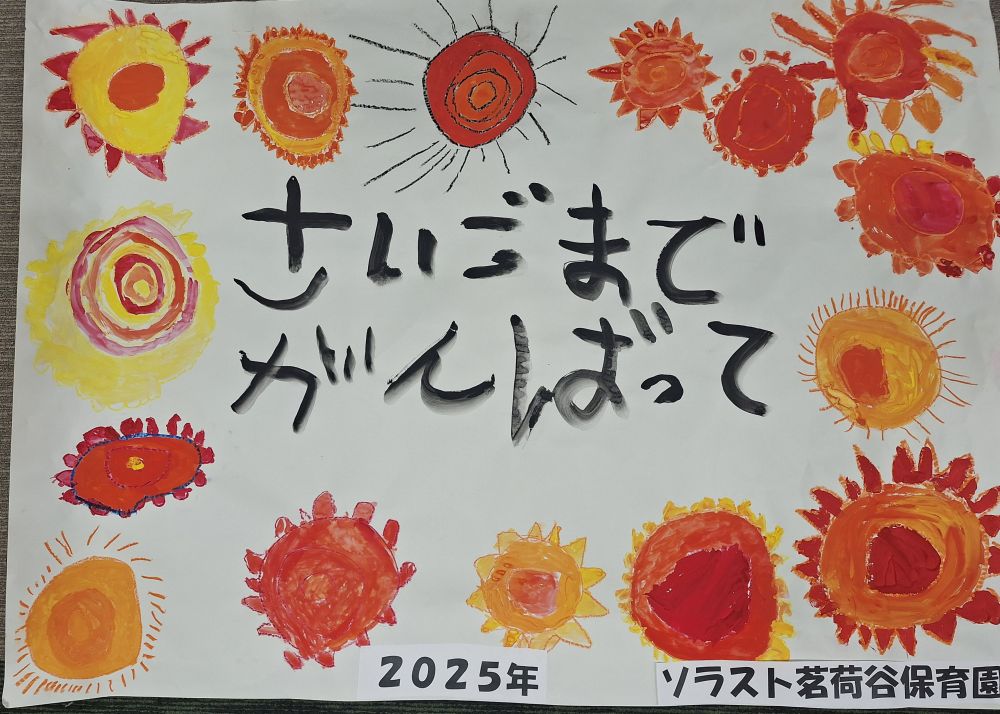 さいごまで
がんばって
2025年
ソラスト茗荷谷保育園